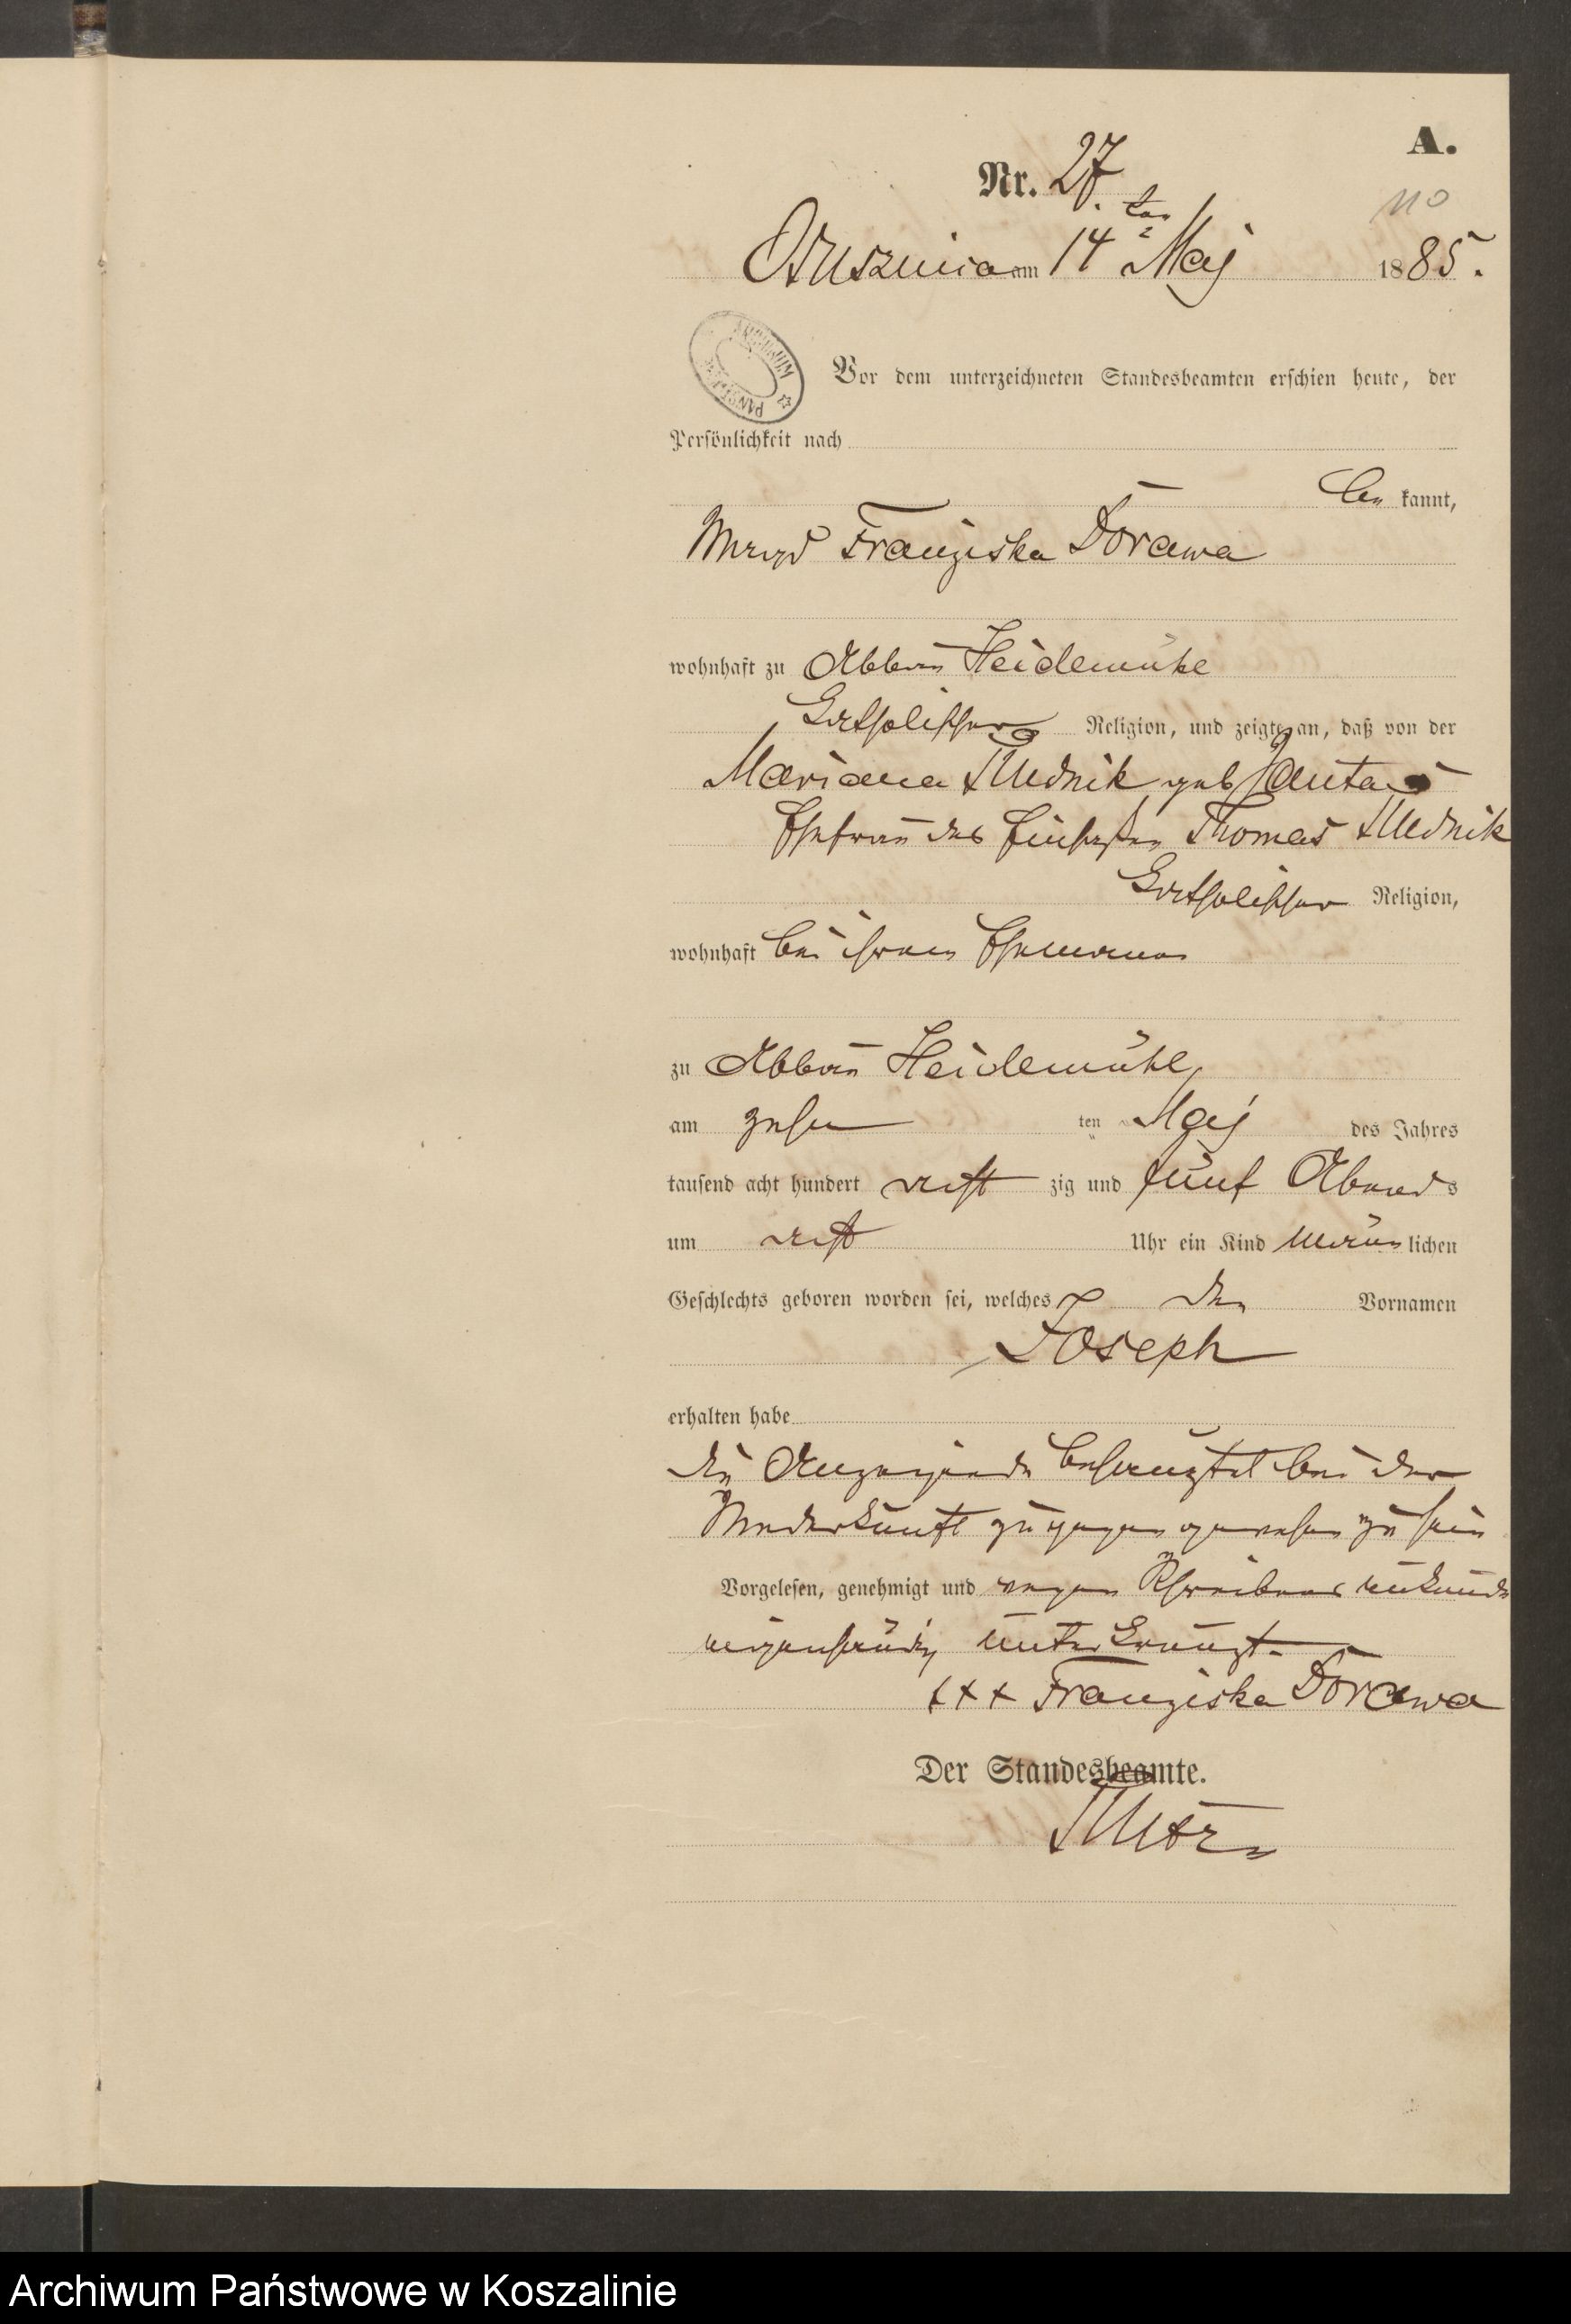 A.
Nr. 27.
110
Oszusznica am 14 ten Maj 1885.
Vor dem unterzeichneten Standesbeamten erschien heute, der
Persönlichkeit nach
be kannt,
Magd Franziska Dorawa
wohnhaft zu Abbau Heidemühl
katholischer Religion, und zeigte an, daß von der
Mariana Studnik geb
Ehefrau des Thomas Studnik
katholischer Religion,
wohnhaft bei ihrem Ehemann
zu Abbau Heidemühl
am zehn ten Maj des Jahres
tausend acht hundert acht zig und fünf Abend s
um acht Uhr ein Kind männ lichen
Geschlechts geboren worden sei, welches den Vornamen
Joseph
erhalten habe
die Anzeigende behauptet bei der
Niederkunft zugegen gewesen zu sein
Vorgelesen, genehmigt und wegen Schreibens unkunde
eigenhändig unterkreuzt.
+++ Franziska Dorawa
Der Standesbeamte.
Archiwum Państwowe w Koszalinie